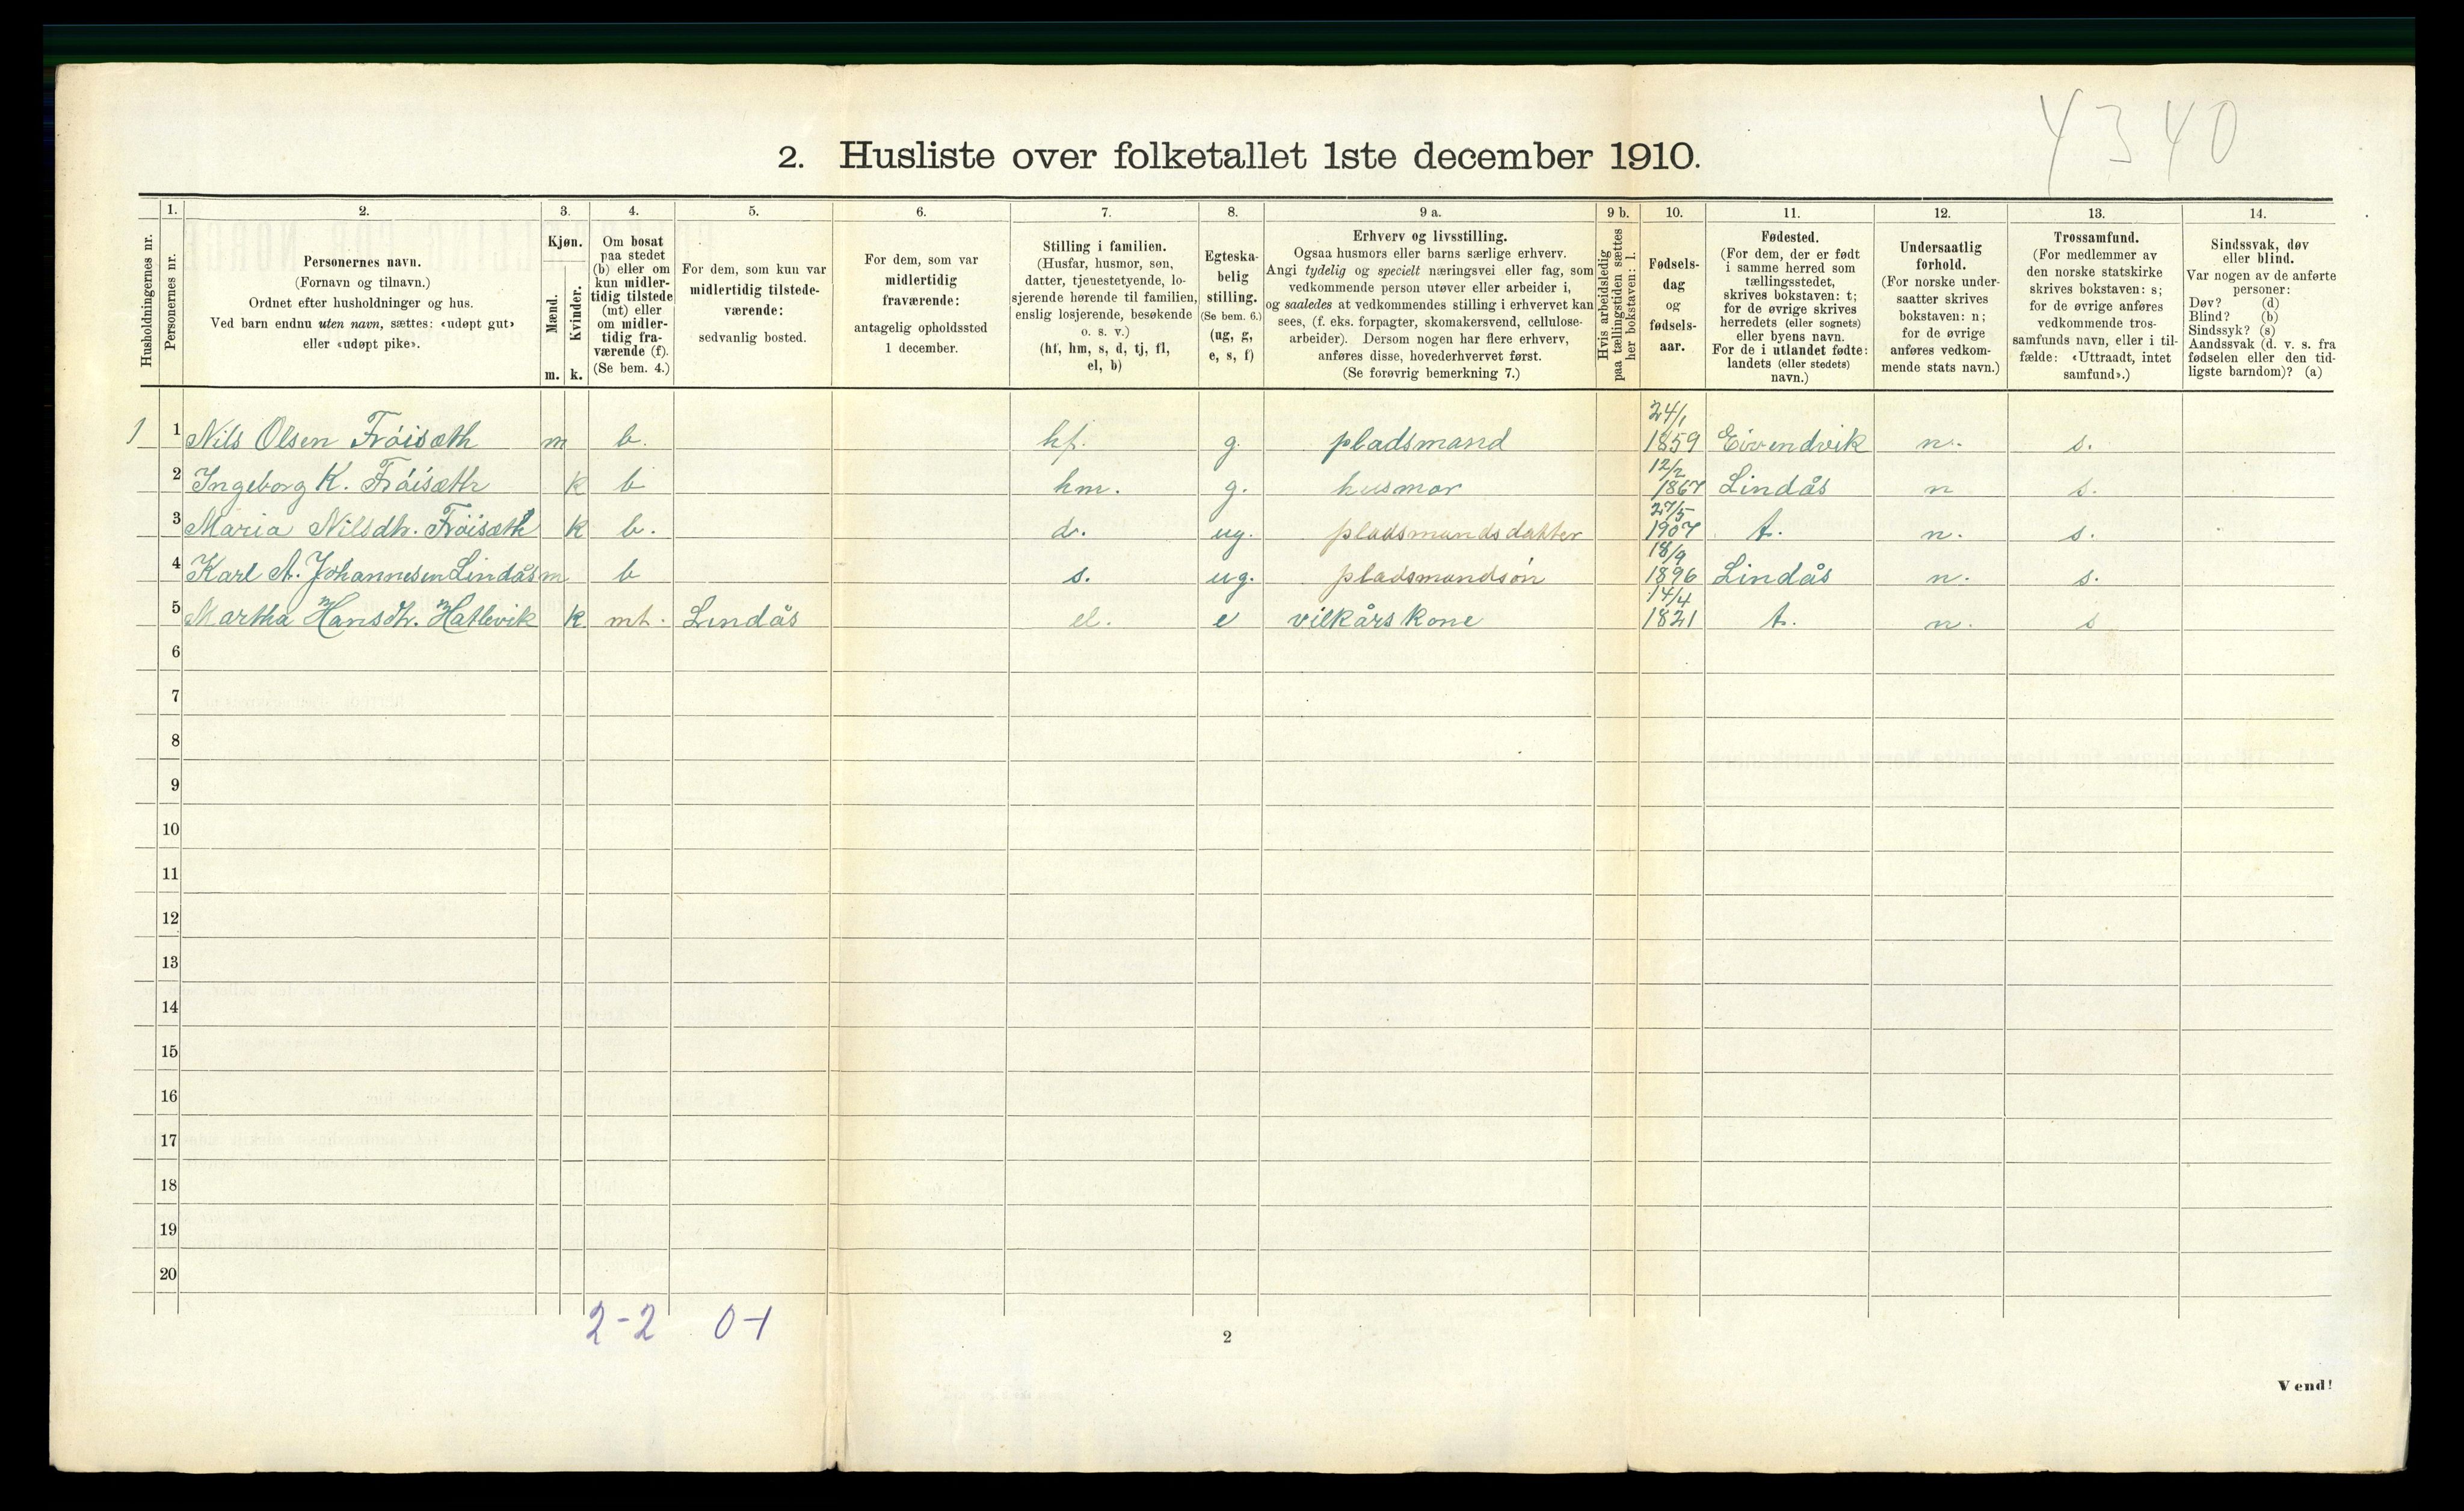 4340
2. Husliste over folketallet 1ste december 1910.
Husholdningernes nr.
1. Personernes nr.
2. Personernes navn. (Fornavn og tilnavn.) Ordnet efter husholdninger og hus. Ved barn endnu uten navn, sættes: «udøpt gut» eller «udøpt pike».
3. Kjøn. Mænd. m. Kvinder. k.
4. Om bosat paa stedet (b) eller om kun midlertidig tilstede (mt) eller om midlertidig fraværende (f). (Se bem. 4.)
5. For dem, som kun var midlertidig tilstedeværende: sedvanlig bosted.
6. For dem, som var midlertidig fraværende: antagelig opholdssted 1 december.
7. Stilling i familien. (Husfar, husmor, søn, datter, tjenestetyende, losjerende hørende til familien, enslig losjerende, besøkende o. s. v.) (hf, hm, s, d, tj, fl, el, b)
8. Egteskabelig stilling. (Se bem. 6.) (ug, g, e, s, f)
9 a. Erhverv og livsstilling. Ogsaa husmors eller barns særlige erhverv. Angi tydelig og specielt næringsvei eller fag, som vedkommende person utøver eller arbeider i, og saaledes at vedkommendes stilling i erhvervet kan sees, (f. eks. forpagter, skomakersvend, cellulosearbeider). Dersom nogen har flere erhverv, anføres disse, hovederhvervet først. (Se forøvrig bemerkning 7.)
9 b. Hvis arbeidsledig paa tællingstiden sættes her bokstaven: l.
10. Fødselsdag og fødselsaar.
11. Fødested. (For dem, der er født i samme herred som tællingsstedet, skrives bokstaven: t; for de øvrige skrives herredets (eller sognets) eller byens navn. For de i utlandet fødte: landets (eller stedets) navn.)
12. Undersaatlig forhold. (For norske undersaatter skrives bokstaven: n; for de øvrige anføres vedkommende stats navn.)
13. Trossamfund. (For medlemmer av den norske statskirke skrives bokstaven: s; for de øvrige anføres vedkommende trossamfunds navn, eller i tilfælde: «Uttraadt, intet samfund».)
14. Sindssvak, døv eller blind. Var nogen av de anførte personer: Døv? (d) Blind? (b) Sindssyk? (s) Aandssvak (d. v. s. fra fødselen eller den tidligste barndom)? (a)
1 1 Nils Olsen Fröisæth m b. hf. g. pladsmand 24/1 1859 Eivendvik n. s.
2 Ingeborg K. Fröisæth k b hm. g. husmor 12/2 1867 Lindås n s.
3 Maria Nilsdtr. Fröisæth k b. d. ug. pladsmandsdatter 27/5 1907 t. n. s.
4 Karl A. Johannesen Lindås m b s. ug. pladsmandsön 18/9 1896 Lindås n. s.
5 Martha Hansdtr. Hatlevik k mt. Lindås el. e vilkårskone 14/4 1821 t. n. s
6
7
8
9
10
11
12
13
14
15
16
17
18
19
20
2-2 0-1
2
Vend!